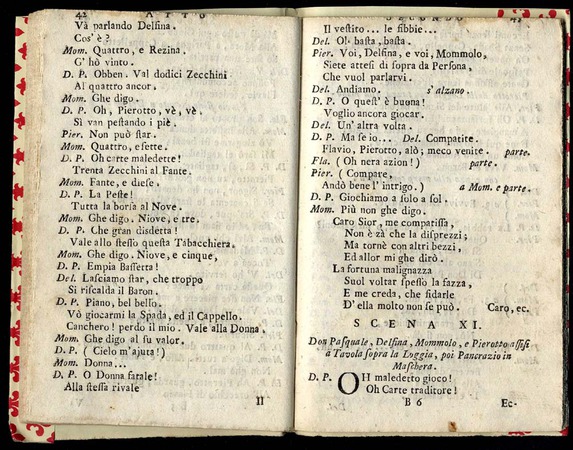 42 ATTO
Và parlando Delfina.
Cos' è?
Mom. Quattro, e Rezina.
G' hò vinto.
D. P. Obben. Val dodici Zecchini
Al quattro ancor.
Mom. Ghe digo.
D. P. Oh, Pierotto, vè, vè,
Si van pestando i piè.
Pier. Non può star.
Mom. Quattro, e sette.
D. P. Oh carte maledette!
Trenta Zecchini al Fante.
Mom. Fante, e diese.
D. P. La Peste!
Tutta la borsa al Nove.
Mom. Ghe digo. Niove, e tre.
D. P. Che gran disdetta!
Vale allo stesso questa Tabacchiera.
Mom. Ghe digo. Niove, e cinque,
D. P. Empia Bassetta!
Del. Lasciamo star, che troppo
Si riscalda il Baron.
D. P. Piano, bel bello.
Vò giocarmi la Spada, ed il Cappello.
Canchero! perdo il mio. Vale alla Donna.
Mom. Ghe digo al su valor.
D. P. (Cielo m'ajuta!)
Mom. Donna...
D. P. O Donna fatale!
Alla stessa rivale
Il
SECONDO
Il vestito... le fibbie...
Del. O! basta, basta.
Pier. Voi, Delfina, e voi, Mommolo,
Siete attesi di sopra da Persona,
Che vuol parlarvi.
Del. Andiamo. s' alzano.
D. P. O quest' è buona!
Voglio ancora giocar.
Del. Un' altra volta.
D. P. Ma se io... Del. Compatite.
Flavio, Pierotto, alò; meco venite. parte.
Fla. (Oh nera azion!) parte.
Pier. (Compare,
Andò bene l' intrigo.) a Mom. e parte.
D. P. Giochiamo a solo a sol.
Mom. Più non ghe digo.
Caro Sior, me compatissa,
Non è zà che la disprezzi;
Ma tornè con altri bezzi,
Ed allor mi ghe dirò.
La fortuna malignazza
Suol voltar spesso la fazza,
E me creda, che fidarle
D' ella molto non se può. Caro, ec.
SCENA XI.
Don Pasquale, Delfina, Mommolo, e Pierotto assisi
a Tavola sopra la Loggia, poi Pancrazio in
Maschera.
D. P. OH maledetto gioco!
Oh Carte traditore!
B 6 Ec-